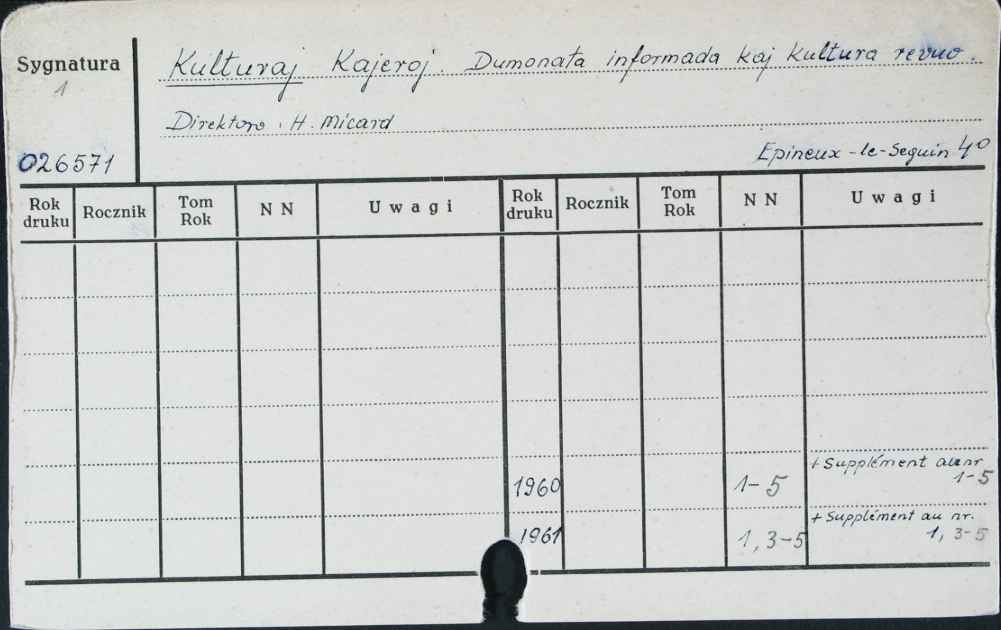 Sygnatura
1
026571
Kulturaj Kajeroj. Dumonata informada kaj kultura revuo.
Direktoro: H. Micard
Epineux-le-Seguin 4º
Rok druku Rocznik Tom Rok N N Uwagi Rok druku Rocznik Tom Rok N N Uwagi
1960 1-5 + Supplément au nr
1-5
1961 1, 3-5 + Supplément au nr.
1, 3-5